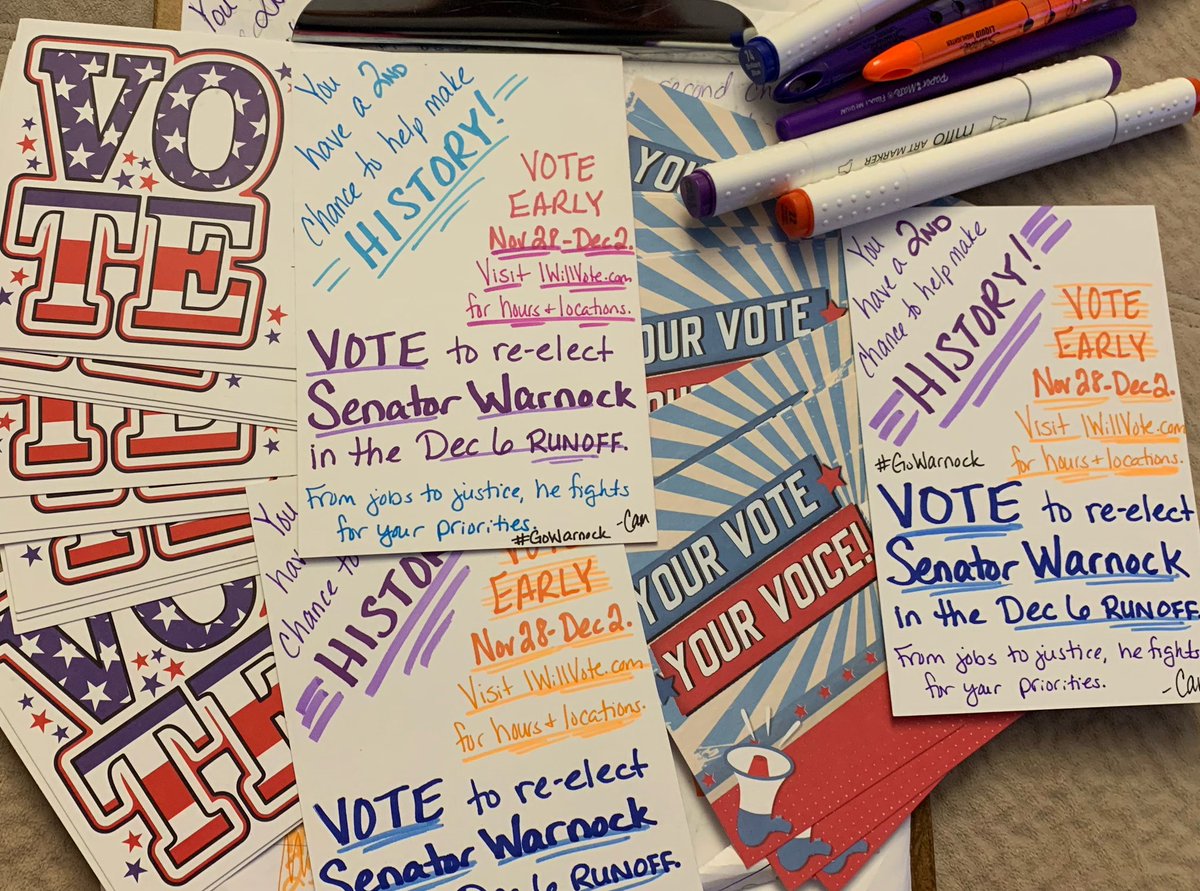 You
VO
TE
TE
TE
TE
VO
TE
You
have a 2ND
chance to help make
HISTORY!
VOTE
EARLY
Nov 28-Dec 2.
Visit IWillVote.com
for hours + locations.
VOTE to re-elect
Senator Warnock
in the Dec 6 RUNOFF.
From jobs to justice, he fights
for your priorities.
#GoWarnock
-Can
You
chance to
HISTORY
EARLY
Nov 28-Dec 2.
Visit IWillVote.com
for hours + locations.
VOTE to re-elect
Senator Warnock
Dec 6 RUNOFF.
second
YOUR
OUR VOTE
YOUR VOTE
YOUR VOICE!
74
LIQUID HIGHLIGHTER
PAPER MATE
millo ART MARKER
You
have a 2ND
chance to help make
HISTORY!
VOTE
EARLY
Nov 28-Dec 2.
Visit IWillVote.com
for hours + locations.
#GoWarnock
VOTE to re-elect
Senator Warnock
in the Dec 6 RUNOFF
From jobs to justice, he fights
for your priorities.
-Can